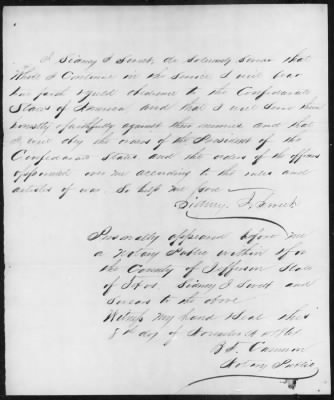 I Sidney F. Sweet, do solemnly swear that
While I Continue in the Service I will bear
true faith & yield obedience to the Confederate
States of America and that I will serve them
honestly & faithfully against their enemies and that
I will obey the orders of the President of the
Confederate States and the orders of the officers
appointed over me according to the rules and
articles of war. So help me
Sidney F. Sweet
Personally appeared before me
a Notary Public within & for
the County of Jefferson State
of Sidney F Sweet and
Swears to the above
Witness my hand & seal this
day of November
Cameron
Notary Public